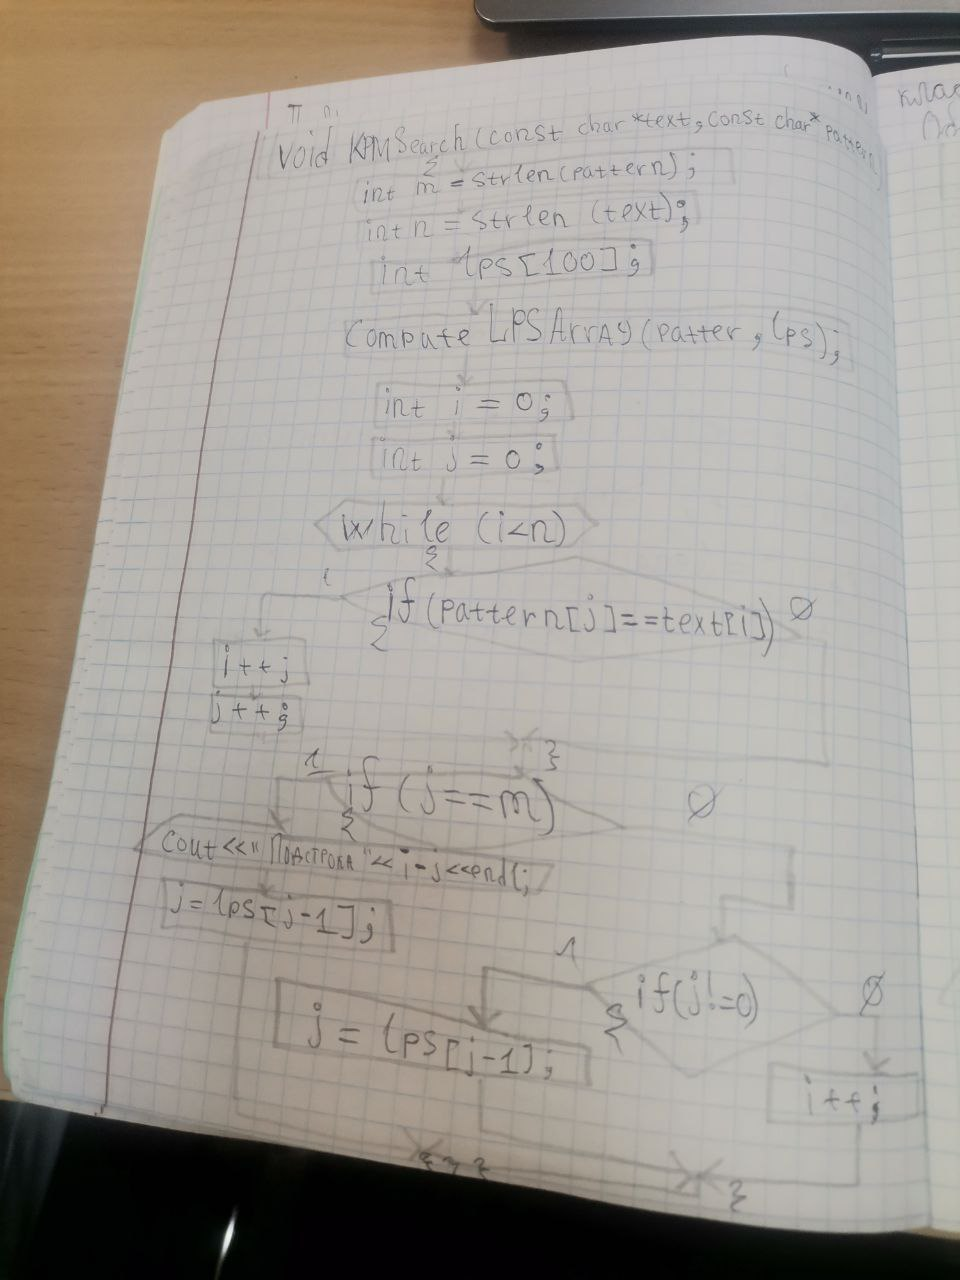 void KPMSearch(const char *text, const char* pattern)
{
int m = strlen(pattern);
int n = strlen (text);
int lps[100];
Compute LPSArray(patter, lps);
int i = 0;
int j = 0;
while (i<n)
{
1 if (pattern[j]==text[i]) 0
{
i++;
j++;
}
1 if (j==m) 0
{
cout<<"Подстрока"<<i-j<<endl;
j=lps[j-1];
1 if(j!=0) 0
{
j = lps[j-1];
i++;
} } }
}
клас